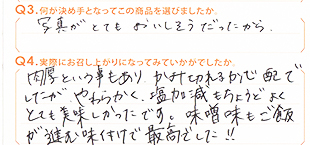 Q3.何が決め手となってこの商品を選びましたか.
写真がとてもおいしそうだったから.
Q4.実際にお召し上がりになってみていかがでしたか.
肉厚という事もあり かみ切れるかで心配で
したが、やわらかく、塩加減もちょうどよく
とても美味しかったです。味噌味もご飯
が進む味付けで最高でした!!